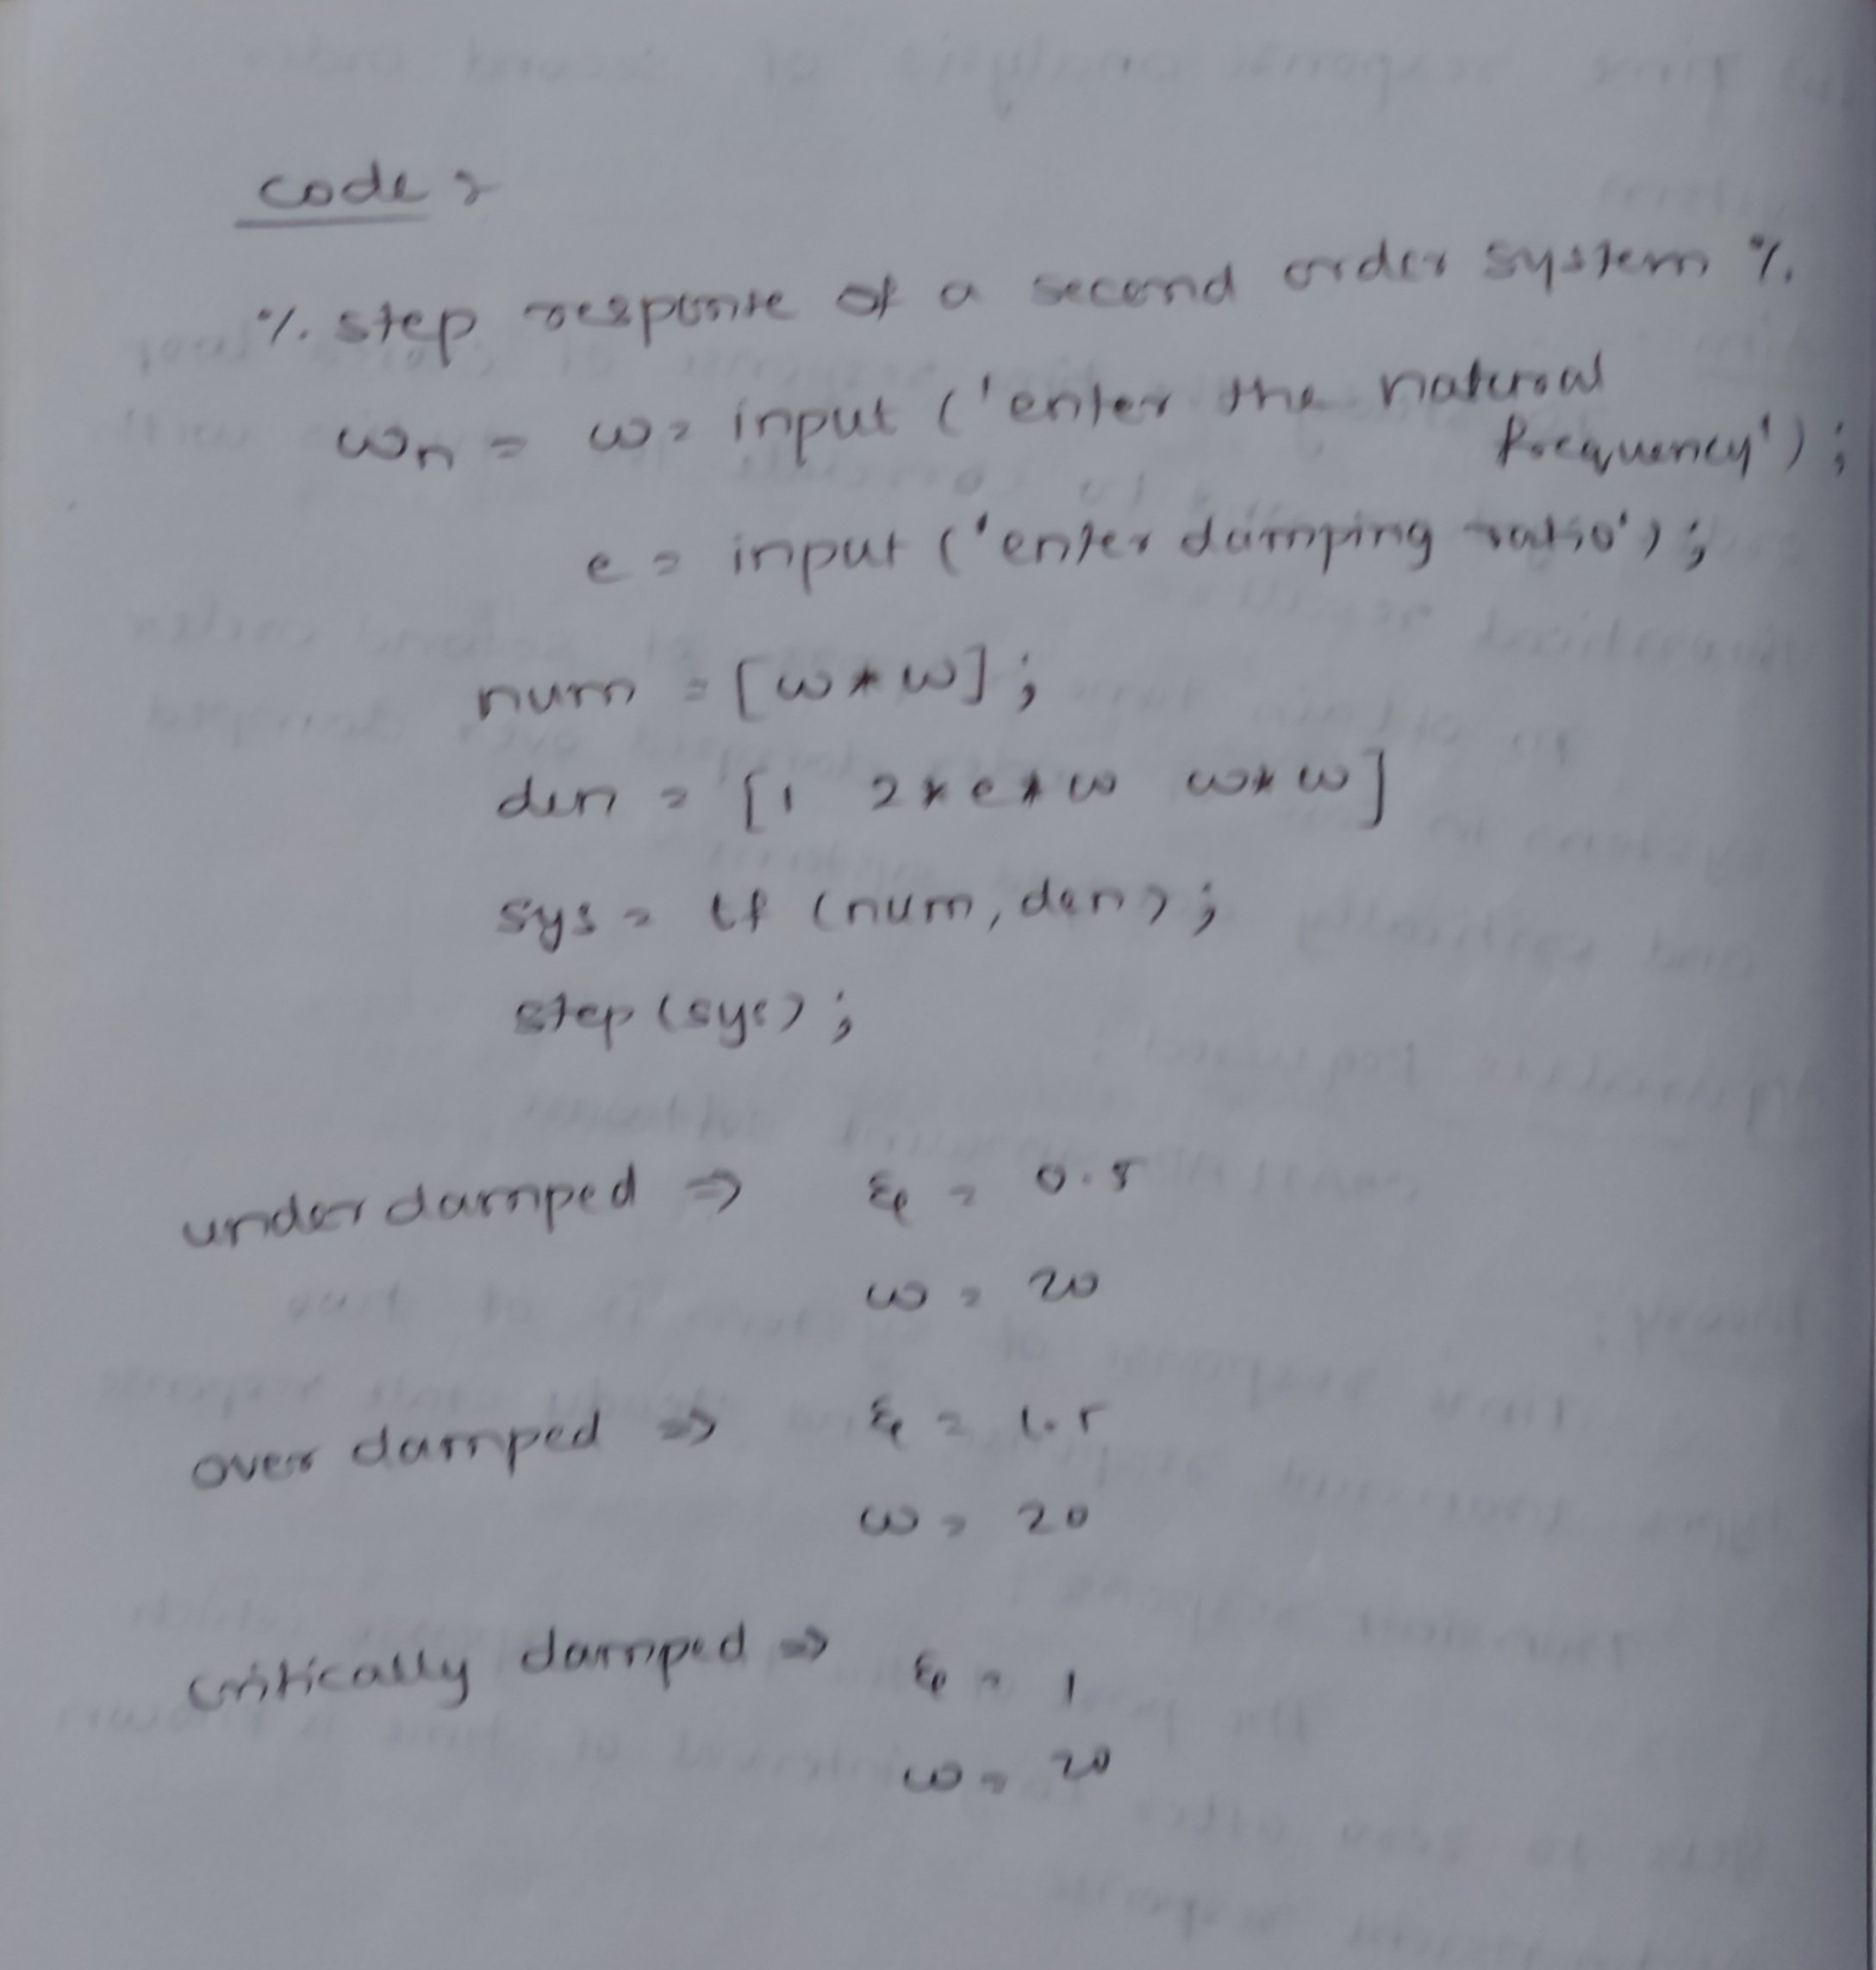 code :
% step response of a second order system %
wn = w = input ('enter the natural
frequency');
e = input ('enter damping ratio');
num = [w*w];
den = [1 2*e*w w*w]
sys = tf (num, den);
step (sys);
under damped ⇒ ξ = 0.5
ω = 20
over damped ⇒ ξ = 1.5
ω = 20
critically damped ⇒ ξ = 1
ω = 20